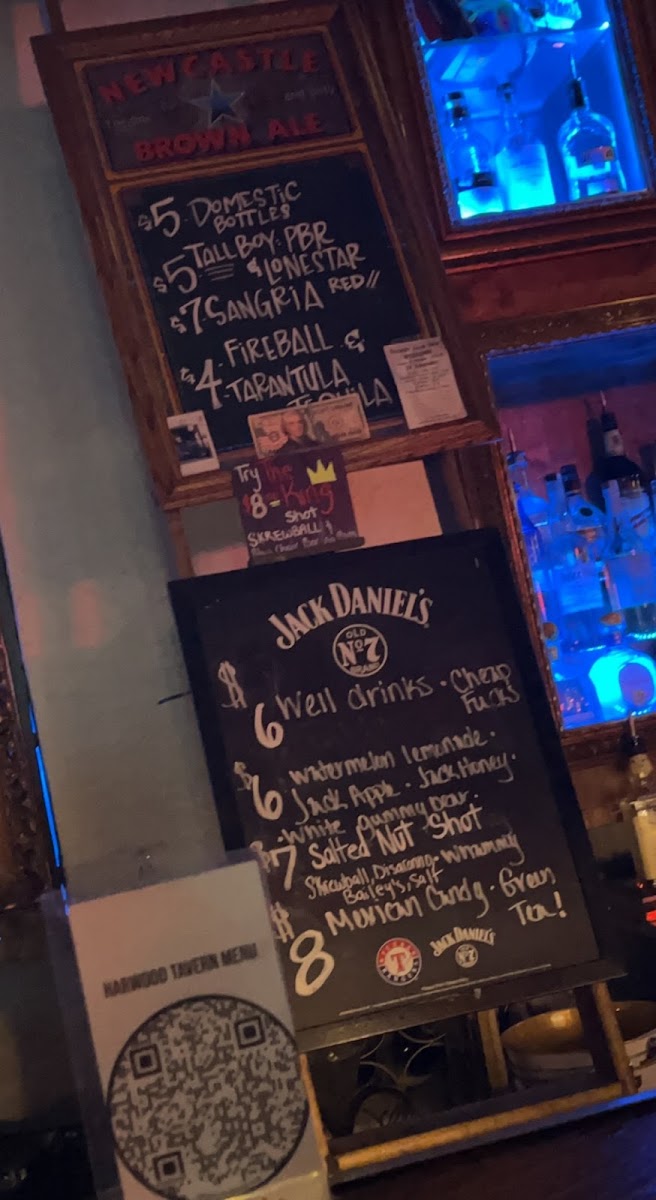 NEWCASTLE
BROWN ALE
$5 DOMESTIC
BOTTLES
$5 TALLBOY: PBR
& LONESTAR
$7 SANGRIA RED//
$4 FIREBALL &
TARANTULA
TEQUILA
Try The
$8 King
Shot
SKREWBALL &
JACK DANIEL'S
OLD
No7
BRAND
$6 Well drinks · Cheap
Fucks
$6 Watermelon lemonade ·
Jack Apple · Jack Honey ·
White Gummy Bear ·
$7 Salted Nut Shot
Skrewball, Disaronno, Whammy
Bailey's, Salt
$8 Mexican Candy · Green
Tea!
T
JACK DANIEL'S
No7
HARWOOD TAVERN MENU